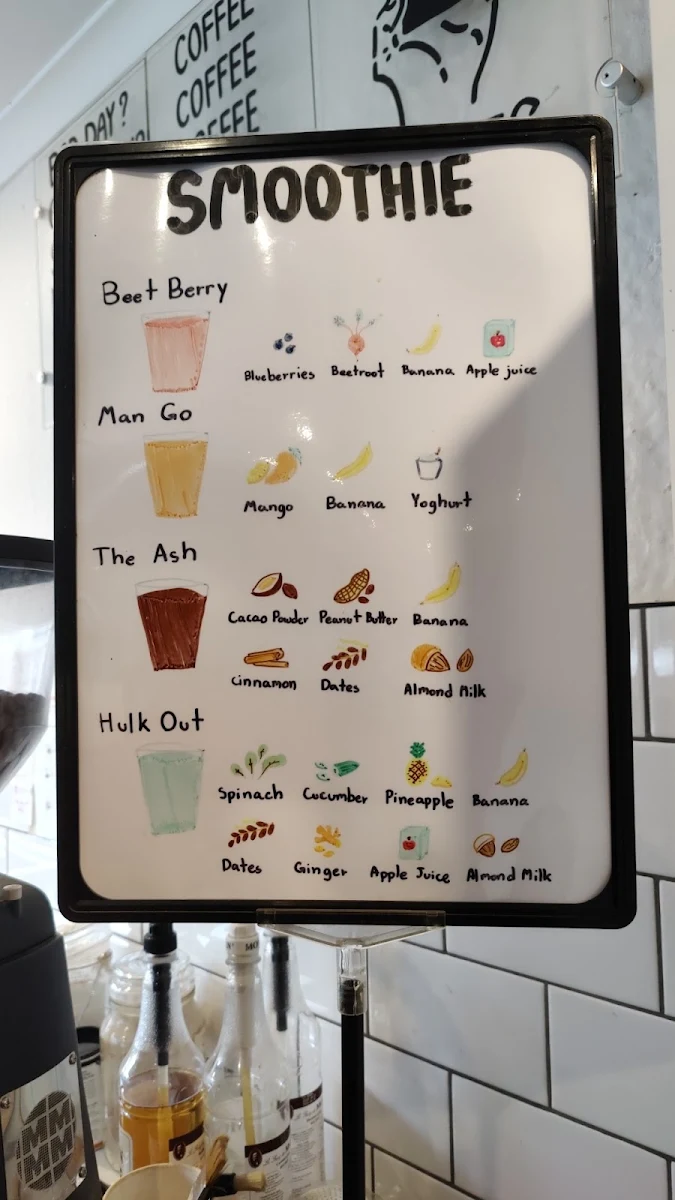 COFFEE
COFFEE
DAY?
SMOOTHIE
Beet Berry
Blueberries Beetroot Banana Apple juice
Man Go
Mango Banana Yoghurt
The Ash
Cacao Powder Peanut Butter Banana
Cinnamon Dates Almond Milk
Hulk Out
Spinach Cucumber Pineapple Banana
Dates Ginger Apple Juice Almond Milk